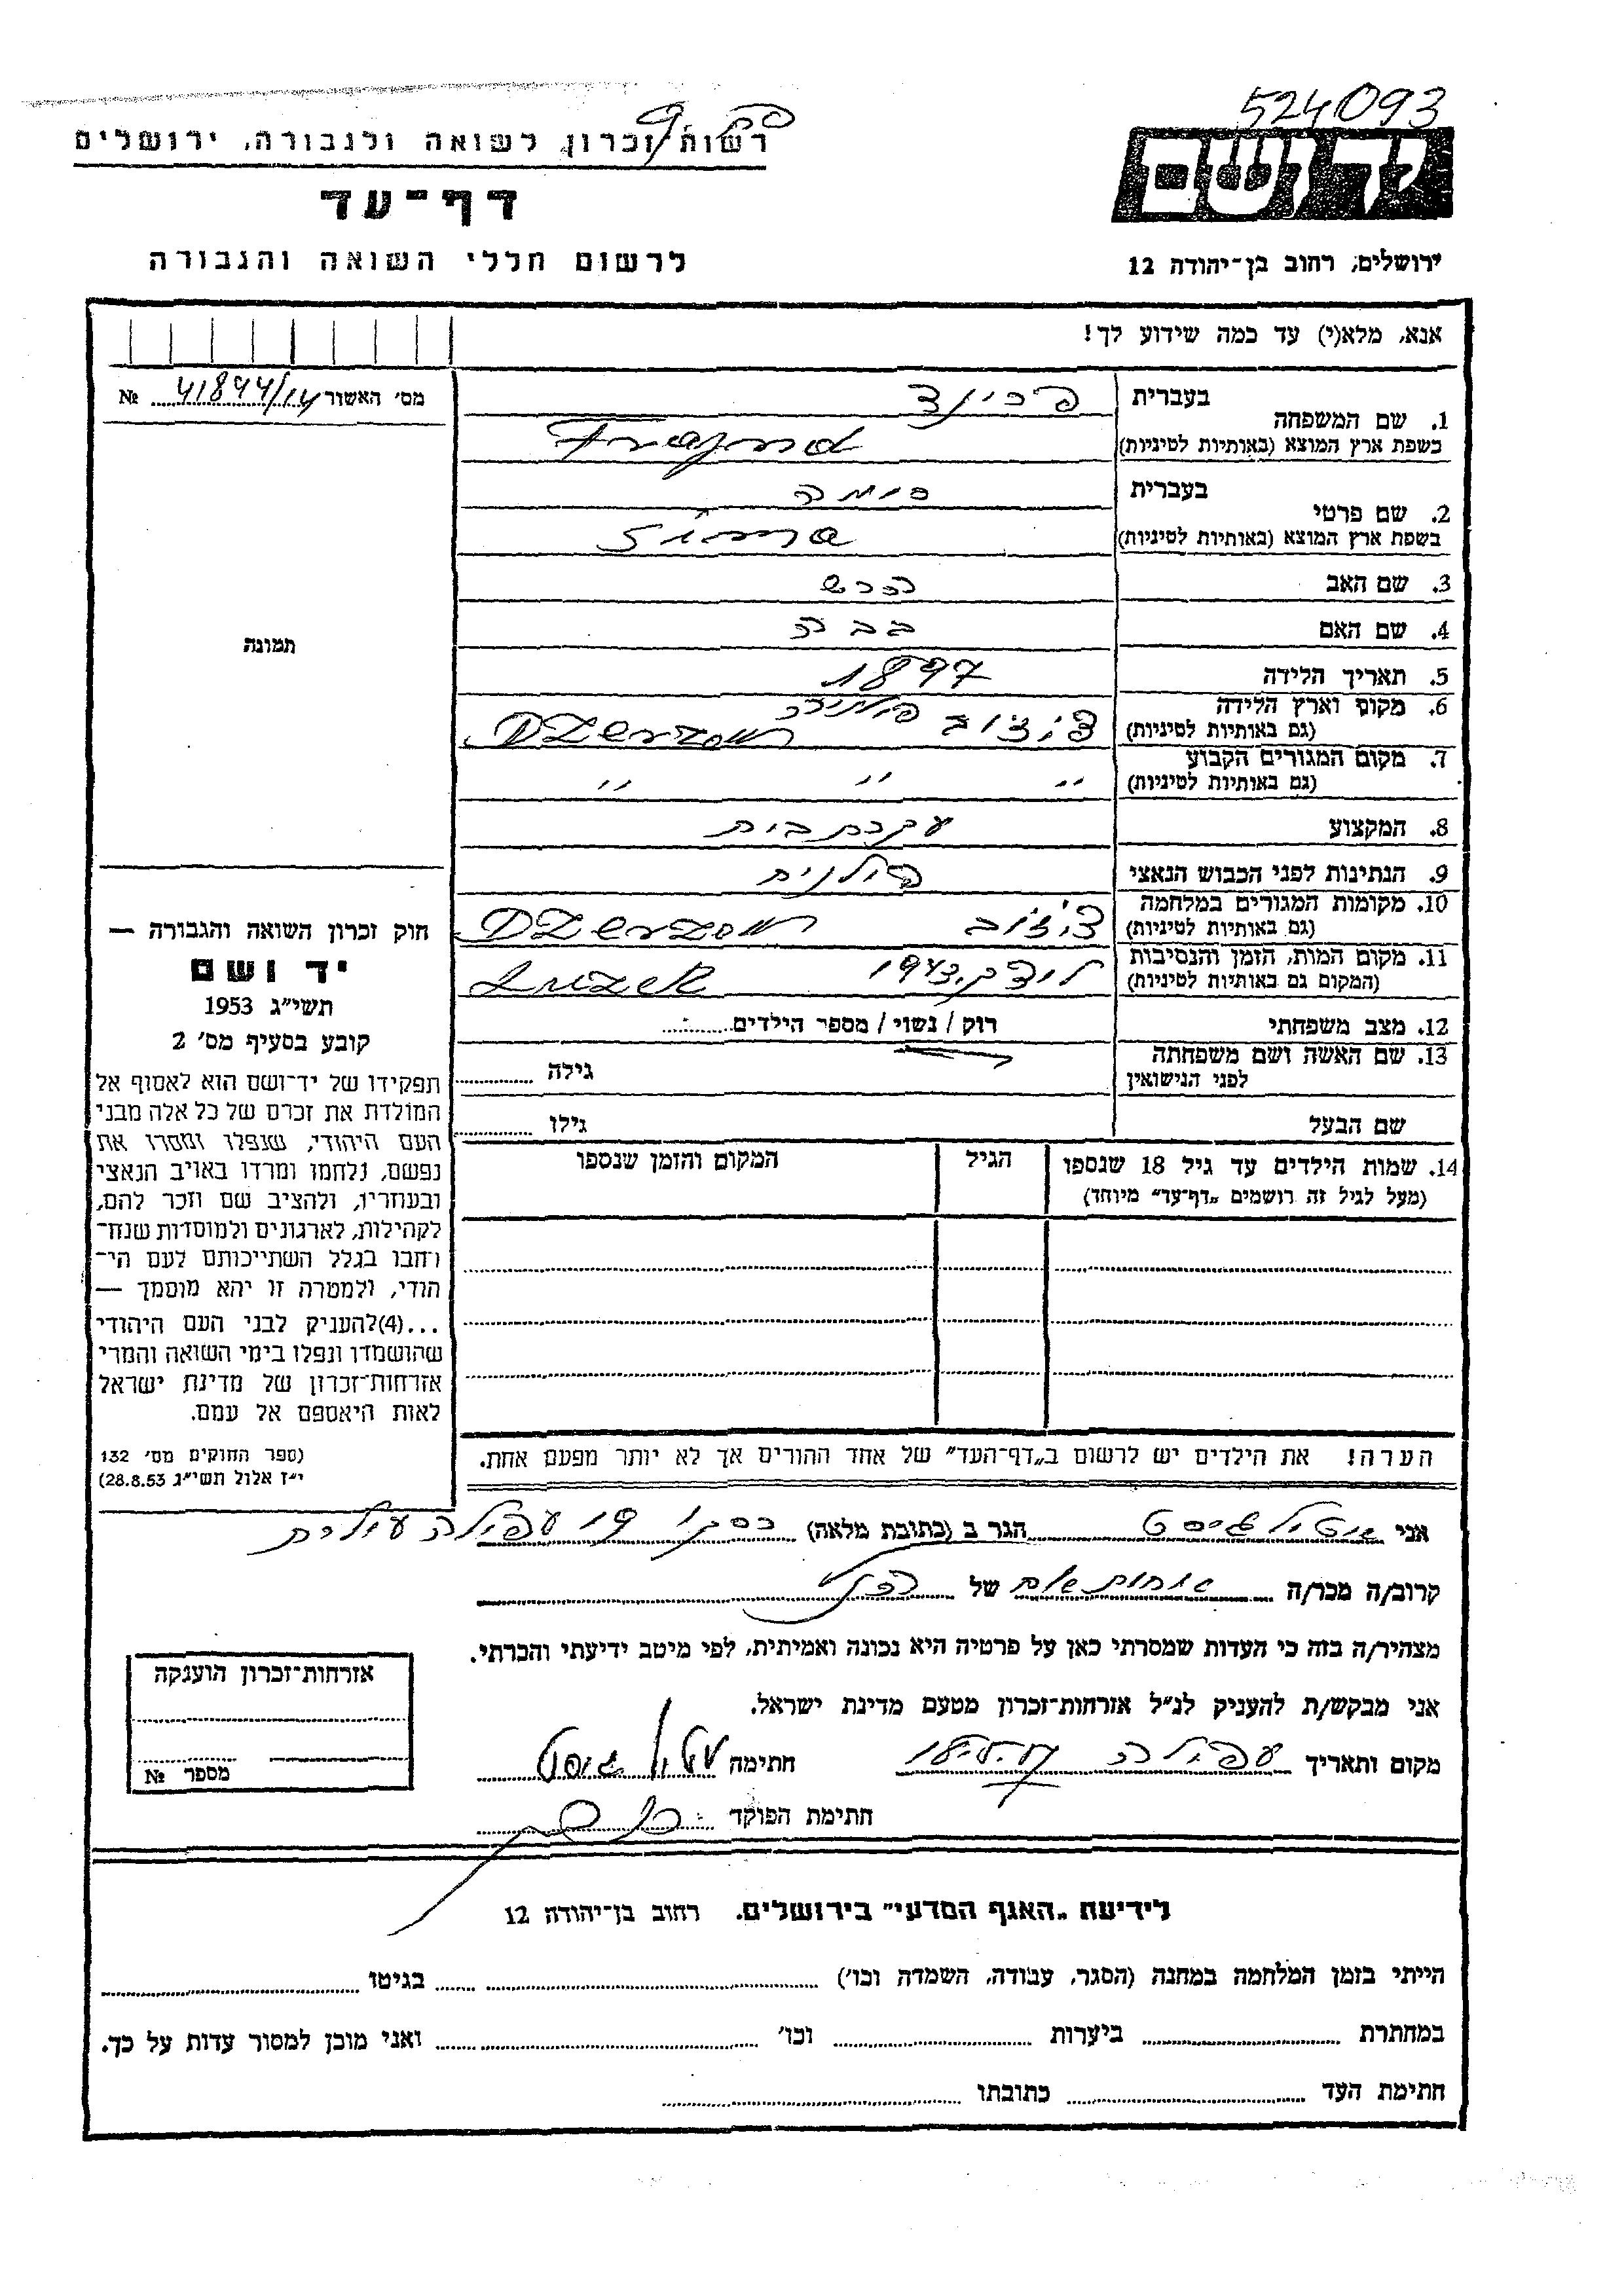 524093
רשות זכרון לשואה ולגבורה, ירושלים
יד ושם
דף-עד
לרשום חללי השואה והגבורה
ירושלים, רחוב בן-יהודה 12
אנא, מלא(י) עד כמה שידוע לך!
מס' האשור 41844/14 №
1. שם המשפחה בעברית פרינד
בשפת ארץ המוצא (באותיות לטיניות) Frajnd
2. שם פרטי בעברית סימה
בשפת ארץ המוצא (באותיות לטיניות) Sima
3. שם האב הרש
4. שם האם בבה
5. תאריך הלידה 1897
6. מקום וארץ הלידה
(גם באותיות לטיניות) Dzerzow
7. מקום המגורים הקבוע
(גם באותיות לטיניות) " " "
8. המקצוע עקרת בית
9. הנתינות לפני הכבוש הנאצי פולנית
10. מקומות המגורים במלחמה
(גם באותיות לטיניות) Dzerzow
11. מקום המות, הזמן והנסיבות
(המקום גם באותיות לטיניות) לוצק, 1943 Luzek
12. מצב משפחתי רוק / נשוי / מספר הילדים
13. שם האשה ושם משפחתה
לפני הנישואין גילה
שם הבעל גילו
14. שמות הילדים עד גיל 18 שנספו הגיל המקום והזמן שנספו
(מעל לגיל זה רושמים „דף-עד" מיוחד)
תמונה
חוק זכרון השואה והגבורה —
יד ושם
תשי"ג 1953
קובע בסעיף מס' 2
תפקידו של יד-ושם הוא לאסוף אל
המולדת את זכרם של כל אלה מבני
העם היהודי, שנפלו ומסרו את
נפשם, נלחמו ומרדו באויב הנאצי
ובעוזריו, ולהציב שם וזכר להם,
לקהילות, לארגונים ולמוסדות שנח-
רחבו בגלל השתייכותם לעם הי-
הודי, ולמטרה זו יהא מוסמך —
...(4)להעניק לבני העם היהודי
שהושמדו ונפלו בימי השואה והמרי
אזרחות-זכרון של מדינת ישראל
לאות היאספם אל עמם.
(ספר החוקים מס' 132
י"ז אלול תשי"ג 28.8.53)
הערה! את הילדים יש לרשום ב„דף-העד" של אחד ההורים אך לא יותר מפעם אחת.
אני הגר ב (כתובת מלאה) עפולה עילית
קרוב/ה מכר/ה של
מצהיר/ה בזה כי העדות שמסרתי כאן על פרטיה היא נכונה ואמיתית, לפי מיטב ידיעתי והכרתי.
אני מבקש/ת להעניק לנ"ל אזרחות-זכרון מטעם מדינת ישראל.
מקום ותאריך עפולה חתימה
חתימת הפוקד
אזרחות-זכרון הוענקה
מספר №
לידיעת „האגף המדעי" בירושלים. רחוב בן-יהודה 12
הייתי בזמן המלחמה במחנה (הסגר, עבודה, השמדה וכו') בגיטו
במחתרת ביערות וכו' ואני מוכן למסור עדות על כך.
חתימת העד כתובתו